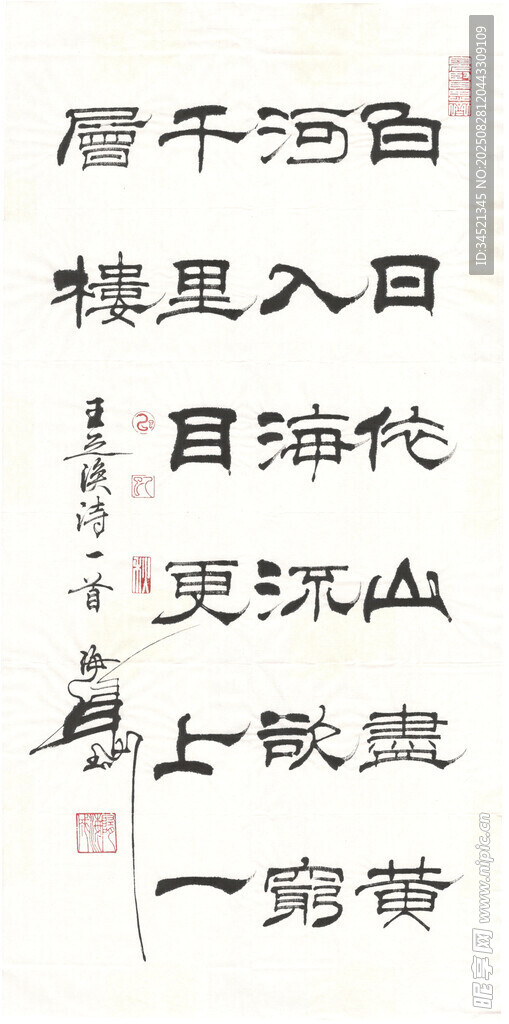 白日依山盡黄
河入海流欲窮
千里目更上一
層樓
王之渙诗一首
海
ID:34521345 NO:20250828120443309109
昵享网 www.nipic.cn